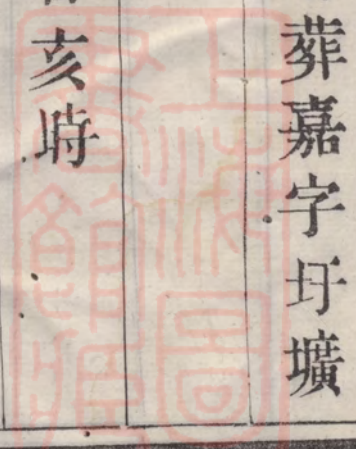 葬嘉字圩壙
亥時